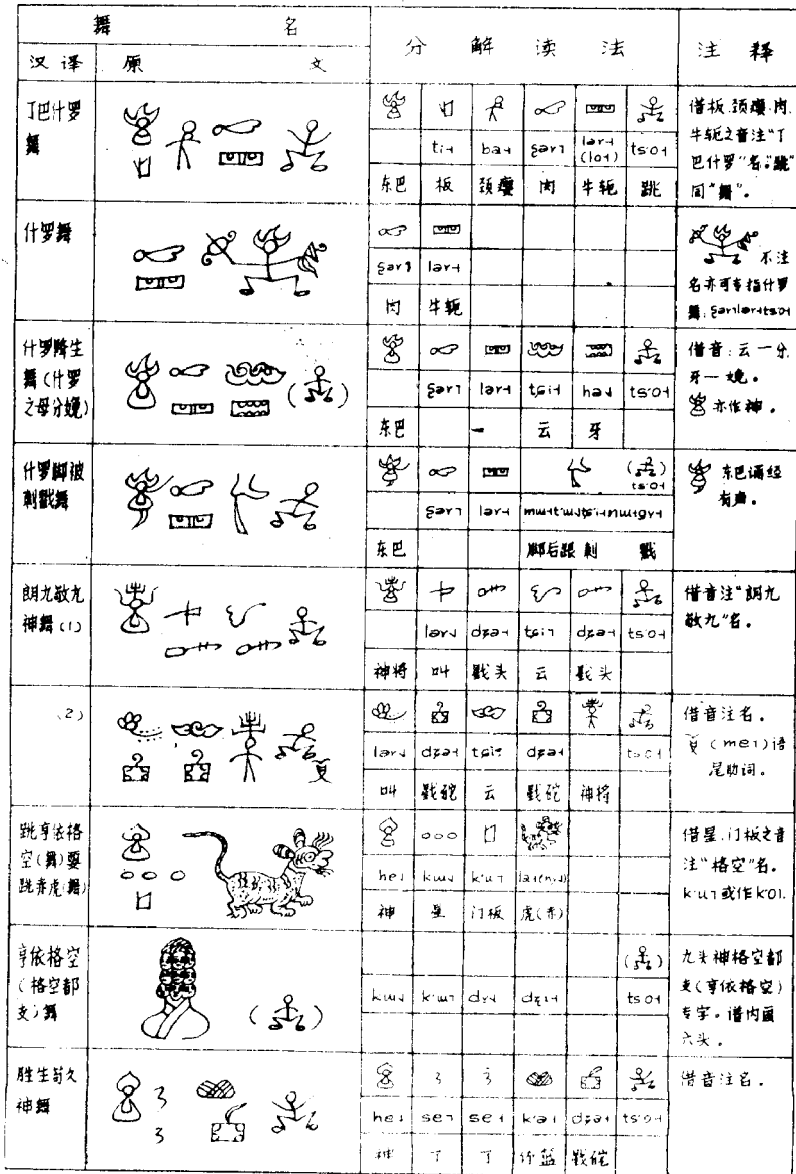 舞 名
分 解 读 法
注 释
汉 译
原 文
丁巴什罗
舞
ti˧ ba˧ ʂər˥ lər˧ ts'o˧
(lo˧)
东巴 板 颈瘿 肉 牛轭 跳
借板、颈瘿、肉、
牛轭之音注“丁
巴什罗”名。“跳”
同“舞”。
什罗舞
ʂər˥ lər˧
肉 牛轭
不注
名亦可专指什罗
舞
什罗降生
舞(什罗
之母分娩)
ʂər˥ lər˧ tʂi˧ hə˩ ts'o˧
东巴 云 牙
借音:云一分
牙一娩。
亦作神。
什罗脚被
刺戳舞
ʂər˥ lər˧
ts'o˧
东巴 脚后跟 刺 戳
东巴诵经
有声。
朗九敬九
神舞(1)
lər˩ dʐə˧ tɕi˥ dʐə˧ ts'o˧
神将 叫 戥头 云 戥头
借音注“朗九
敬九”名。
(2)
lər˩ dʐə˧ dʐə˧ ts'o˧
叫 戥砣 云 戥砣 神将
借音注名。
(me˥)语
尾助词。
跳亨依格
空(舞)要
跳赤虎(舞)
he˩ kɯ˩ k'u˥
神 星 门板 虎(赤)
借星、门板之音
注“格空”名。
k'u˥或作k'o˥.
亨依格空
(格空都
支)舞
kɯ˩ k'u˥ dv˩ dʐɿ˧ ts'o˧
九头神格空都
支(亨依格空)
专字。谱内画
六头。
胜生苟久
神舞
he˩ se˥ se˧ k'ə˧ dʐə˧ ts'o˧
神 了 了 竹篮 戥砣
借音注名。